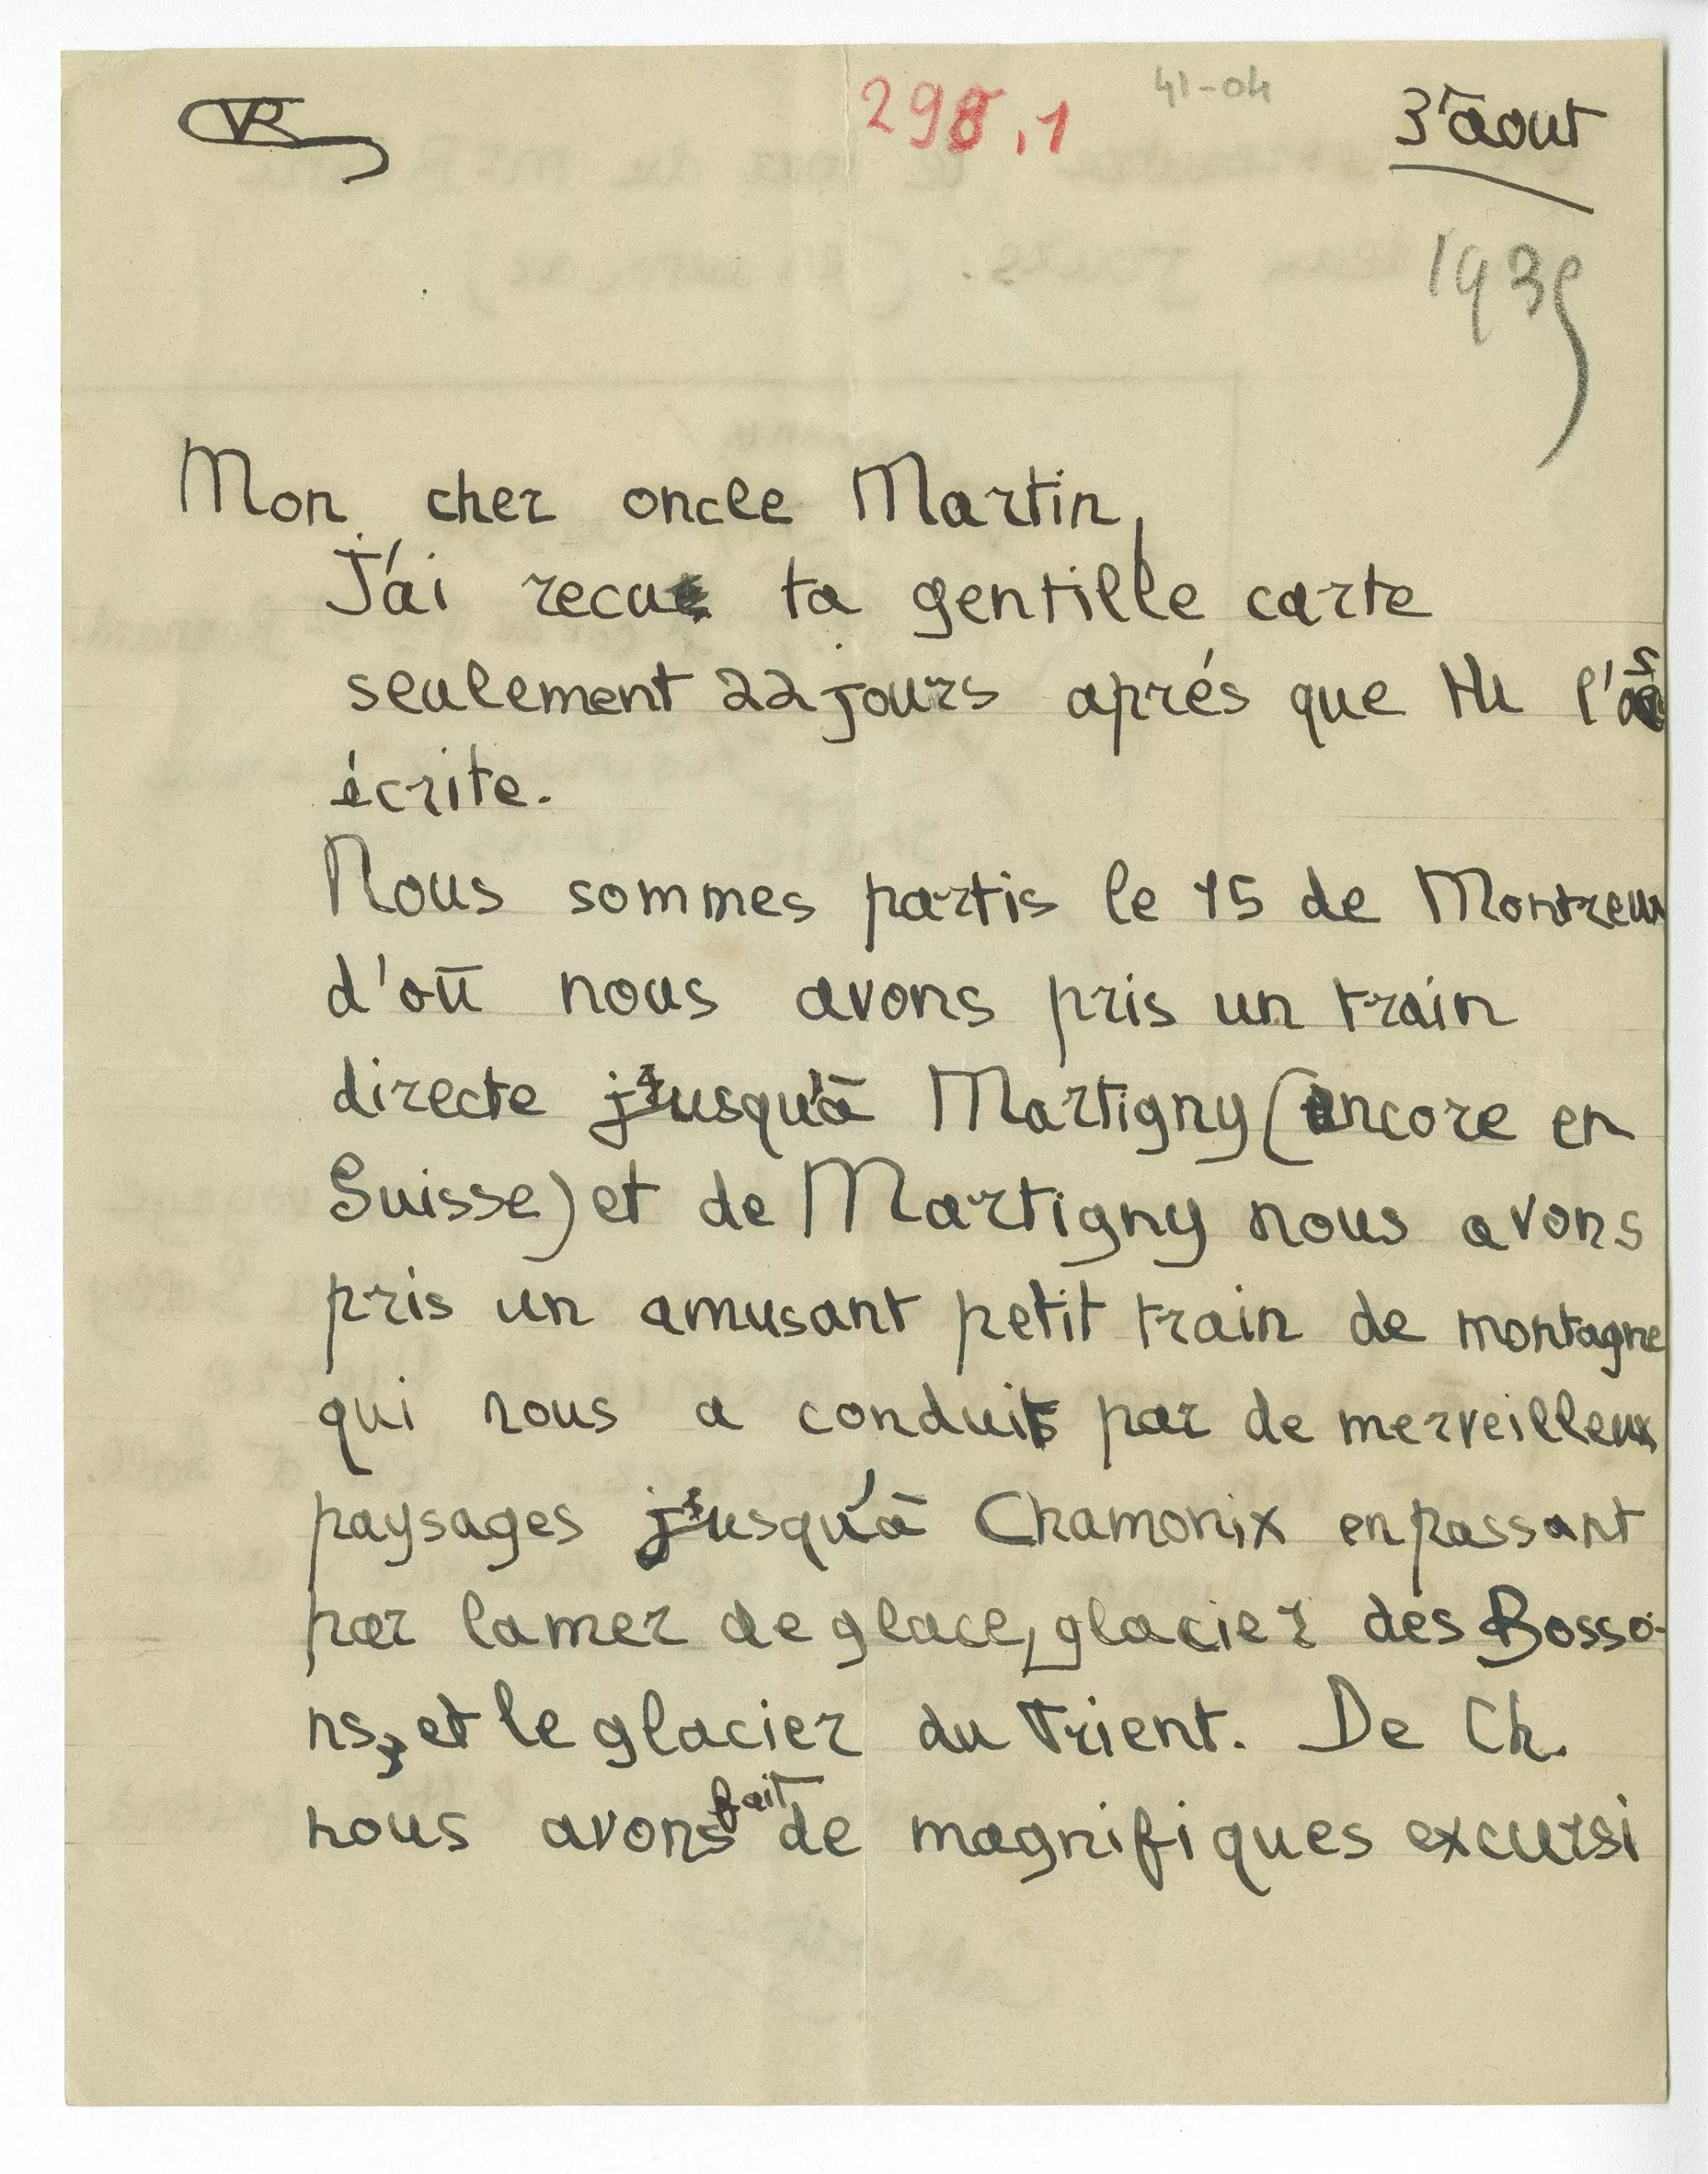 VR 298,1 41-04 3 aout
1939
Mon cher oncle Martin,
J'ai recu ta gentille carte
seulement 22 jours aprés que tu l'as
écrite.
Nous sommes partis le 15 de Montreux
d'où nous avons pris un train
directe jusqu'à Martigny (encore en
Suisse) et de Martigny nous avons
pris un amusant petit train de montagne
qui nous a conduit par de merveilleux
paysages jusqu'à Chamonix en passant
par la mer de glace, glacier des Bosso-
ns, et le glacier du Trient. De Ch.
nous avons fait de magnifiques excursi